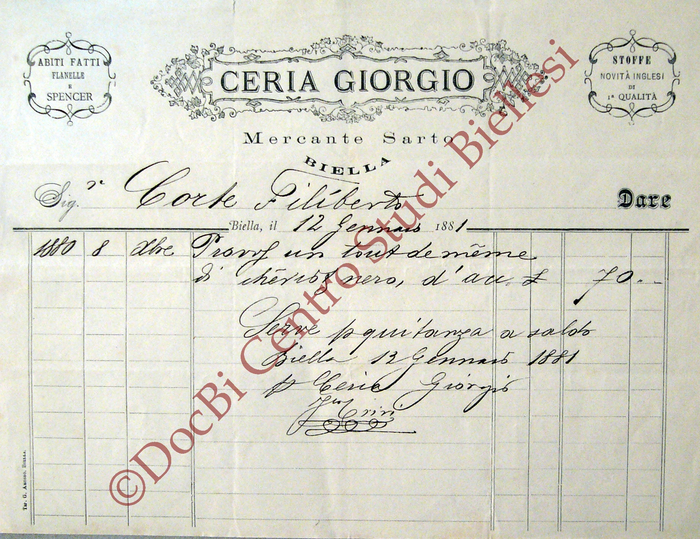 ABITI FATTI
FLANELLE
E
SPENCER
CERIA GIORGIO
STOFFE
NOVITÀ INGLESI
DI
1ª QUALITÀ
Mercante Sarto
BIELLA
Sig.r Corte Filiberto
Dare
Biella, il 12 Gennaio 1881
1880 8 Xbre Provv. un tout de même
di chèviot nero, d'acc. £ 70 --
Serve p quitanza a saldo
Biella 13 Gennaio 1881
p Ceria Giorgio
Tip. G. Amosso, Biella.
©DocBi Centro Studi Biellesi